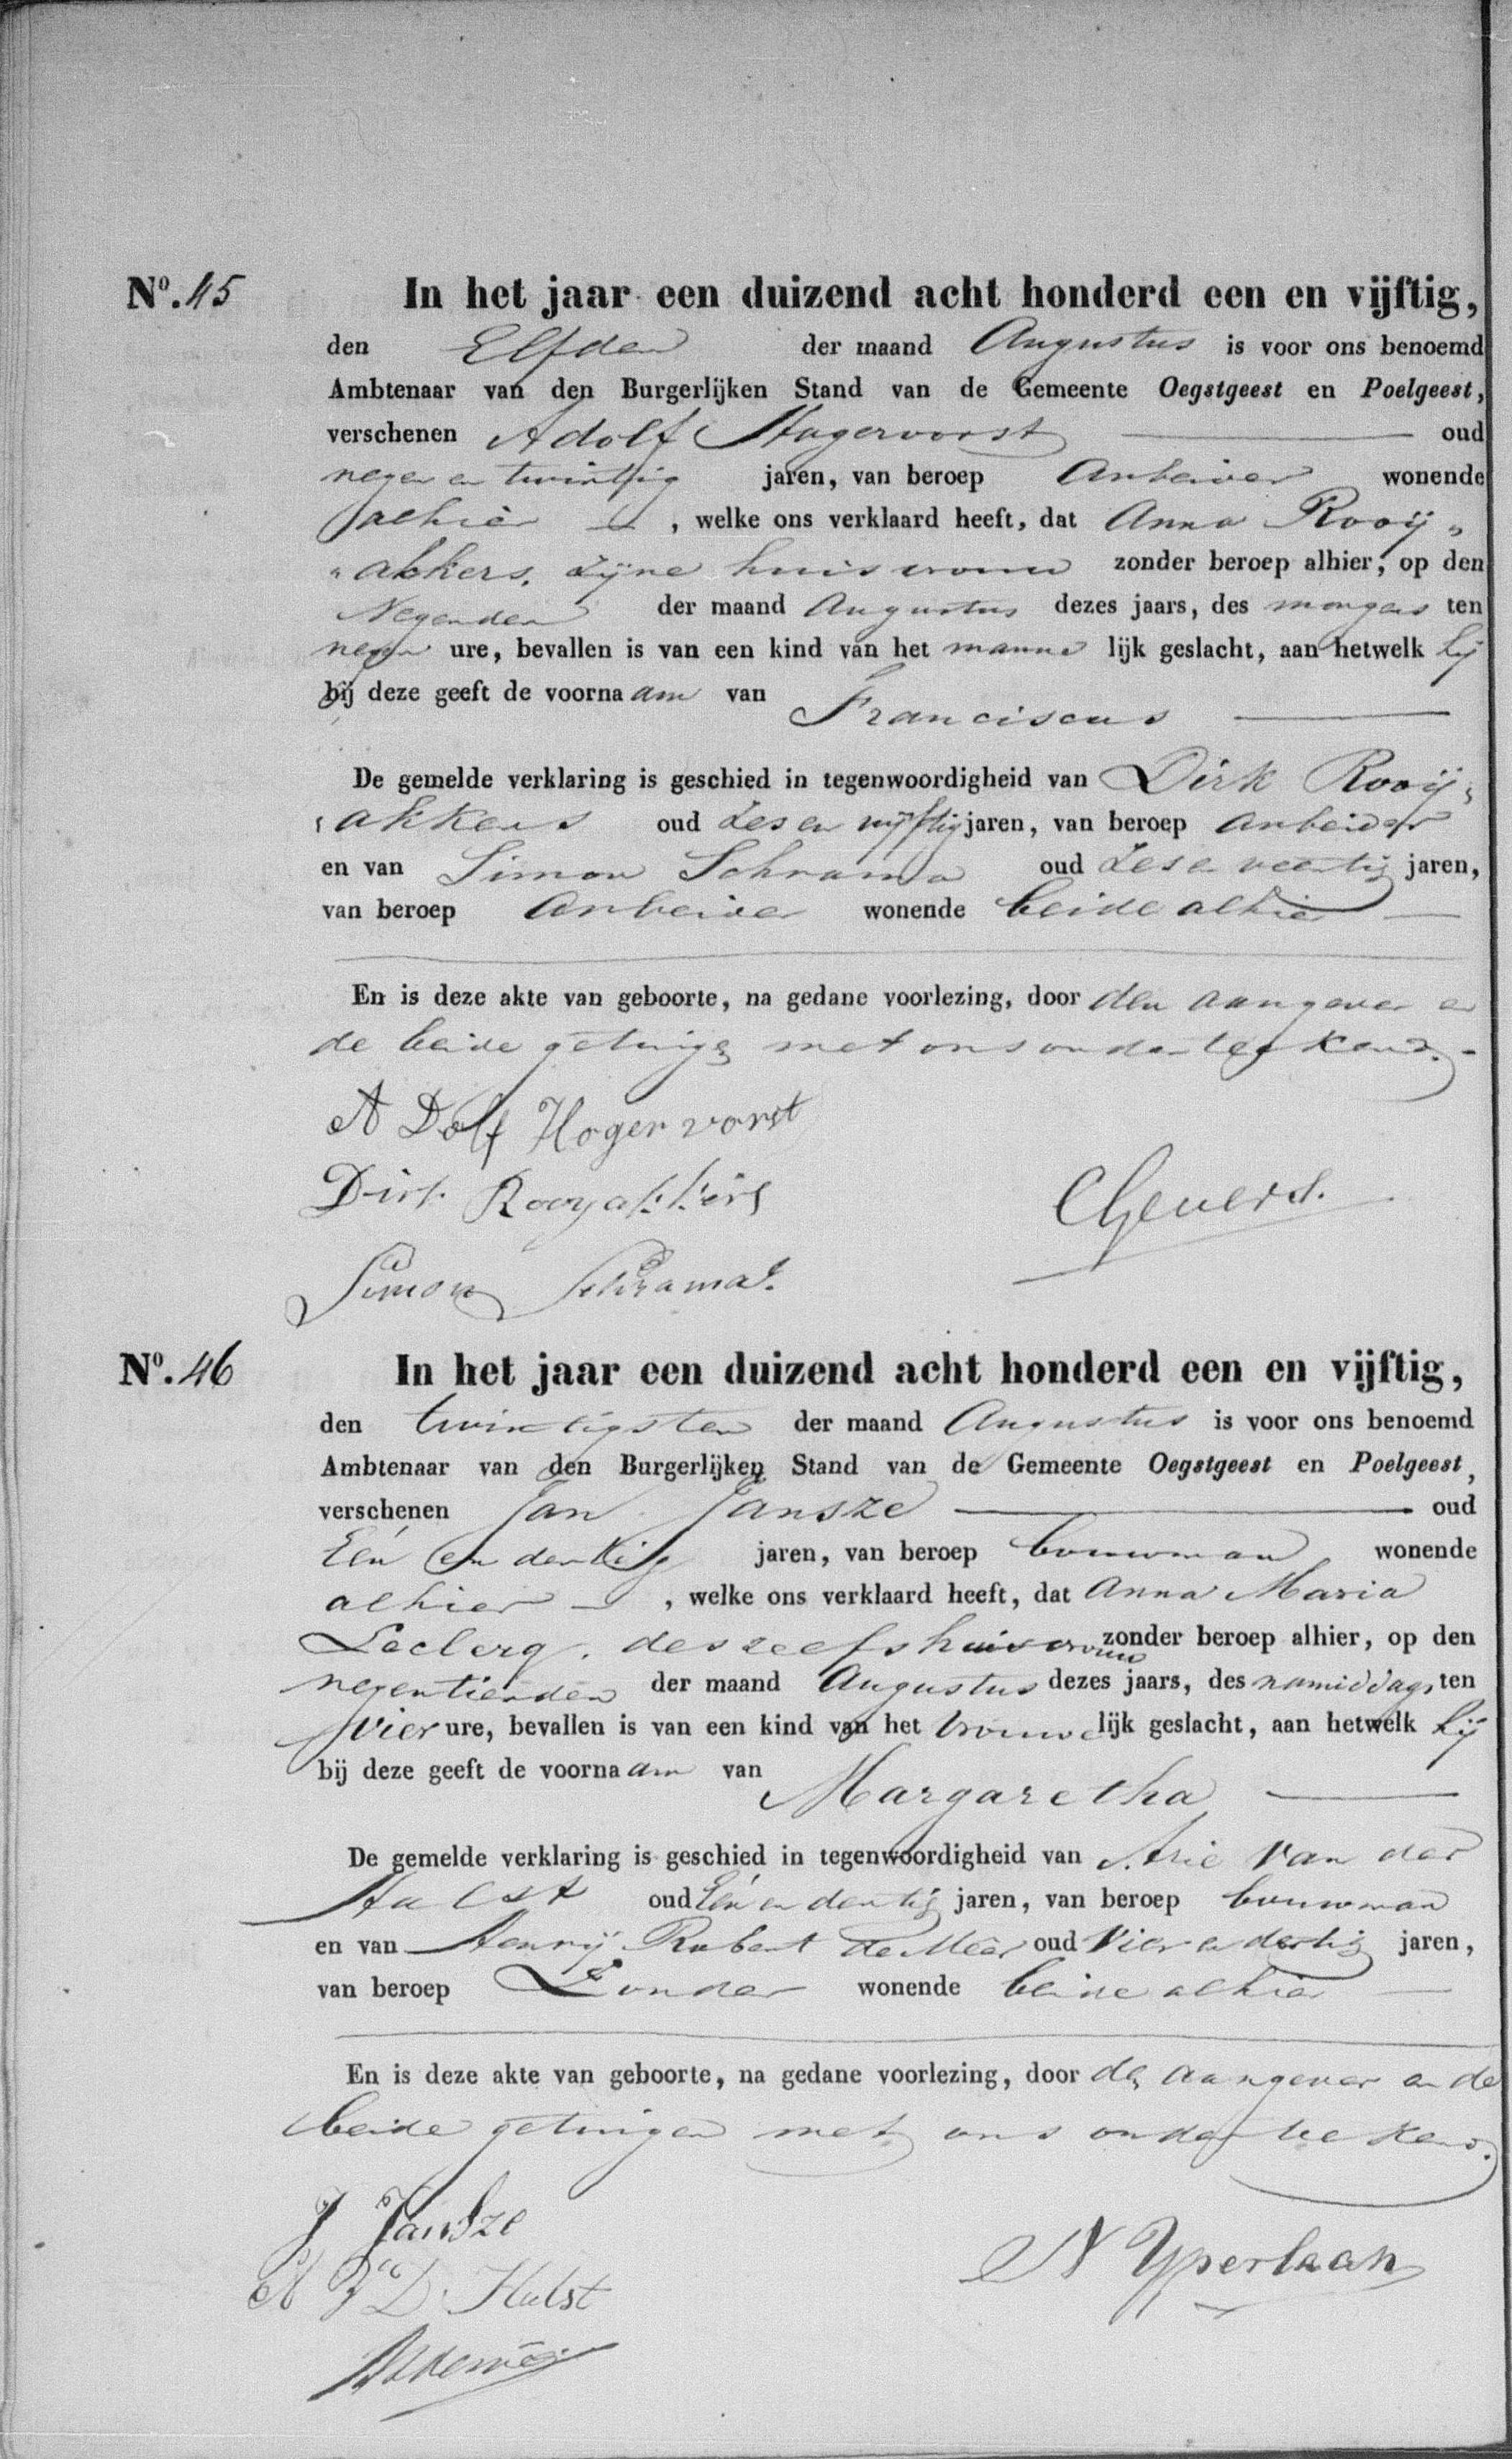 Nº. 45 In het jaar een duizend acht honderd een en vijftig,
den Elfden der maand Augustus is voor ons benoemd
Ambtenaar van den Burgerlijken Stand van de Gemeente Oegstgeest en Poelgeest,
verschenen Adolf Hogervorst oud
negen en twintig jaren, van beroep Arbeider wonende
alhier , welke ons verklaard heeft, dat Anna Rooij„
„akkers, zijne huisvrouw zonder beroep alhier, op den
Negenden der maand Augustus dezes jaars, des morgens ten
negen ure, bevallen is van een kind van het manne lijk geslacht, aan hetwelk hij
bij deze geeft de voorna am van Franciscus
De gemelde verklaring is geschied in tegenwoordigheid van Dirk Rooij„
„akkers oud Zes en vijftig jaren, van beroep arbeider
en van Simon Schrama oud Zes en veertig jaren,
van beroep Arbeider wonende beide alhier
En is deze akte van geboorte, na gedane voorlezing, door den aangever en
de beide getuigen met ons onderteekend.
A Dolf Hogervorst
Dirk Rooyakkers
CGevers.
Simon Schrama
Nº. 46 In het jaar een duizend acht honderd een en vijftig,
den twintigsten der maand Augustus is voor ons benoemd
Ambtenaar van den Burgerlijken Stand van de Gemeente Oegstgeest en Poelgeest,
verschenen Jan Jansze oud
Eén en dertig jaren, van beroep bouwman wonende
alhier , welke ons verklaard heeft, dat Anna Maria
Leclerq, deszelfs huisvrouw zonder beroep alhier, op den
negentienden der maand Augustus dezes jaars, des namiddags ten
vier ure, bevallen is van een kind van het vrouwe lijk geslacht, aan hetwelk hij
bij deze geeft de voorna am van Margaretha
De gemelde verklaring is geschied in tegenwoordigheid van Arie van der
Hulst oud Eén en dertig jaren, van beroep bouwman
en van Henrij Robert de Meer oud Vier en dertig jaren,
van beroep Zonder wonende beide alhier
En is deze akte van geboorte, na gedane voorlezing, door de aangever en de
beide getuigen met ons onderteekend.
J Jansze
N Yperlaan
A v D Hulst